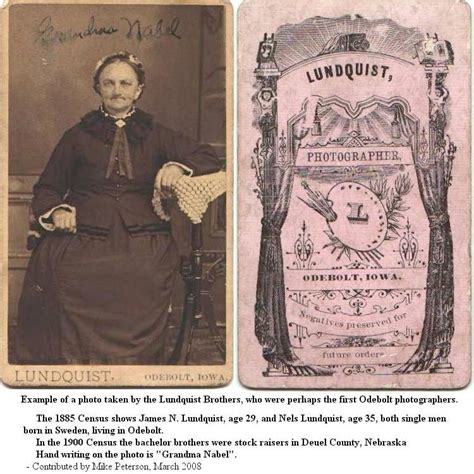 Grandma Nabel
LUNDQUIST.
ODEBOLT, IOWA.
LUNDQUIST,
PHOTOGRAPHER,
L
ODEBOLT, IOWA.
Negatives preserved for
future orders
Example of a photo taken by the Lundquist Brothers, who were perhaps the first Odebolt photographers.
The 1885 Census shows James N. Lundquist, age 29, and Nels Lundquist, age 35, both single men
born in Sweden, living in Odebolt.
In the 1900 Census the bachelor brothers were stock raisers in Deuel County, Nebraska
Hand writing on the photo is "Grandma Nabel".
- Contributed by Mike Peterson, March 2008